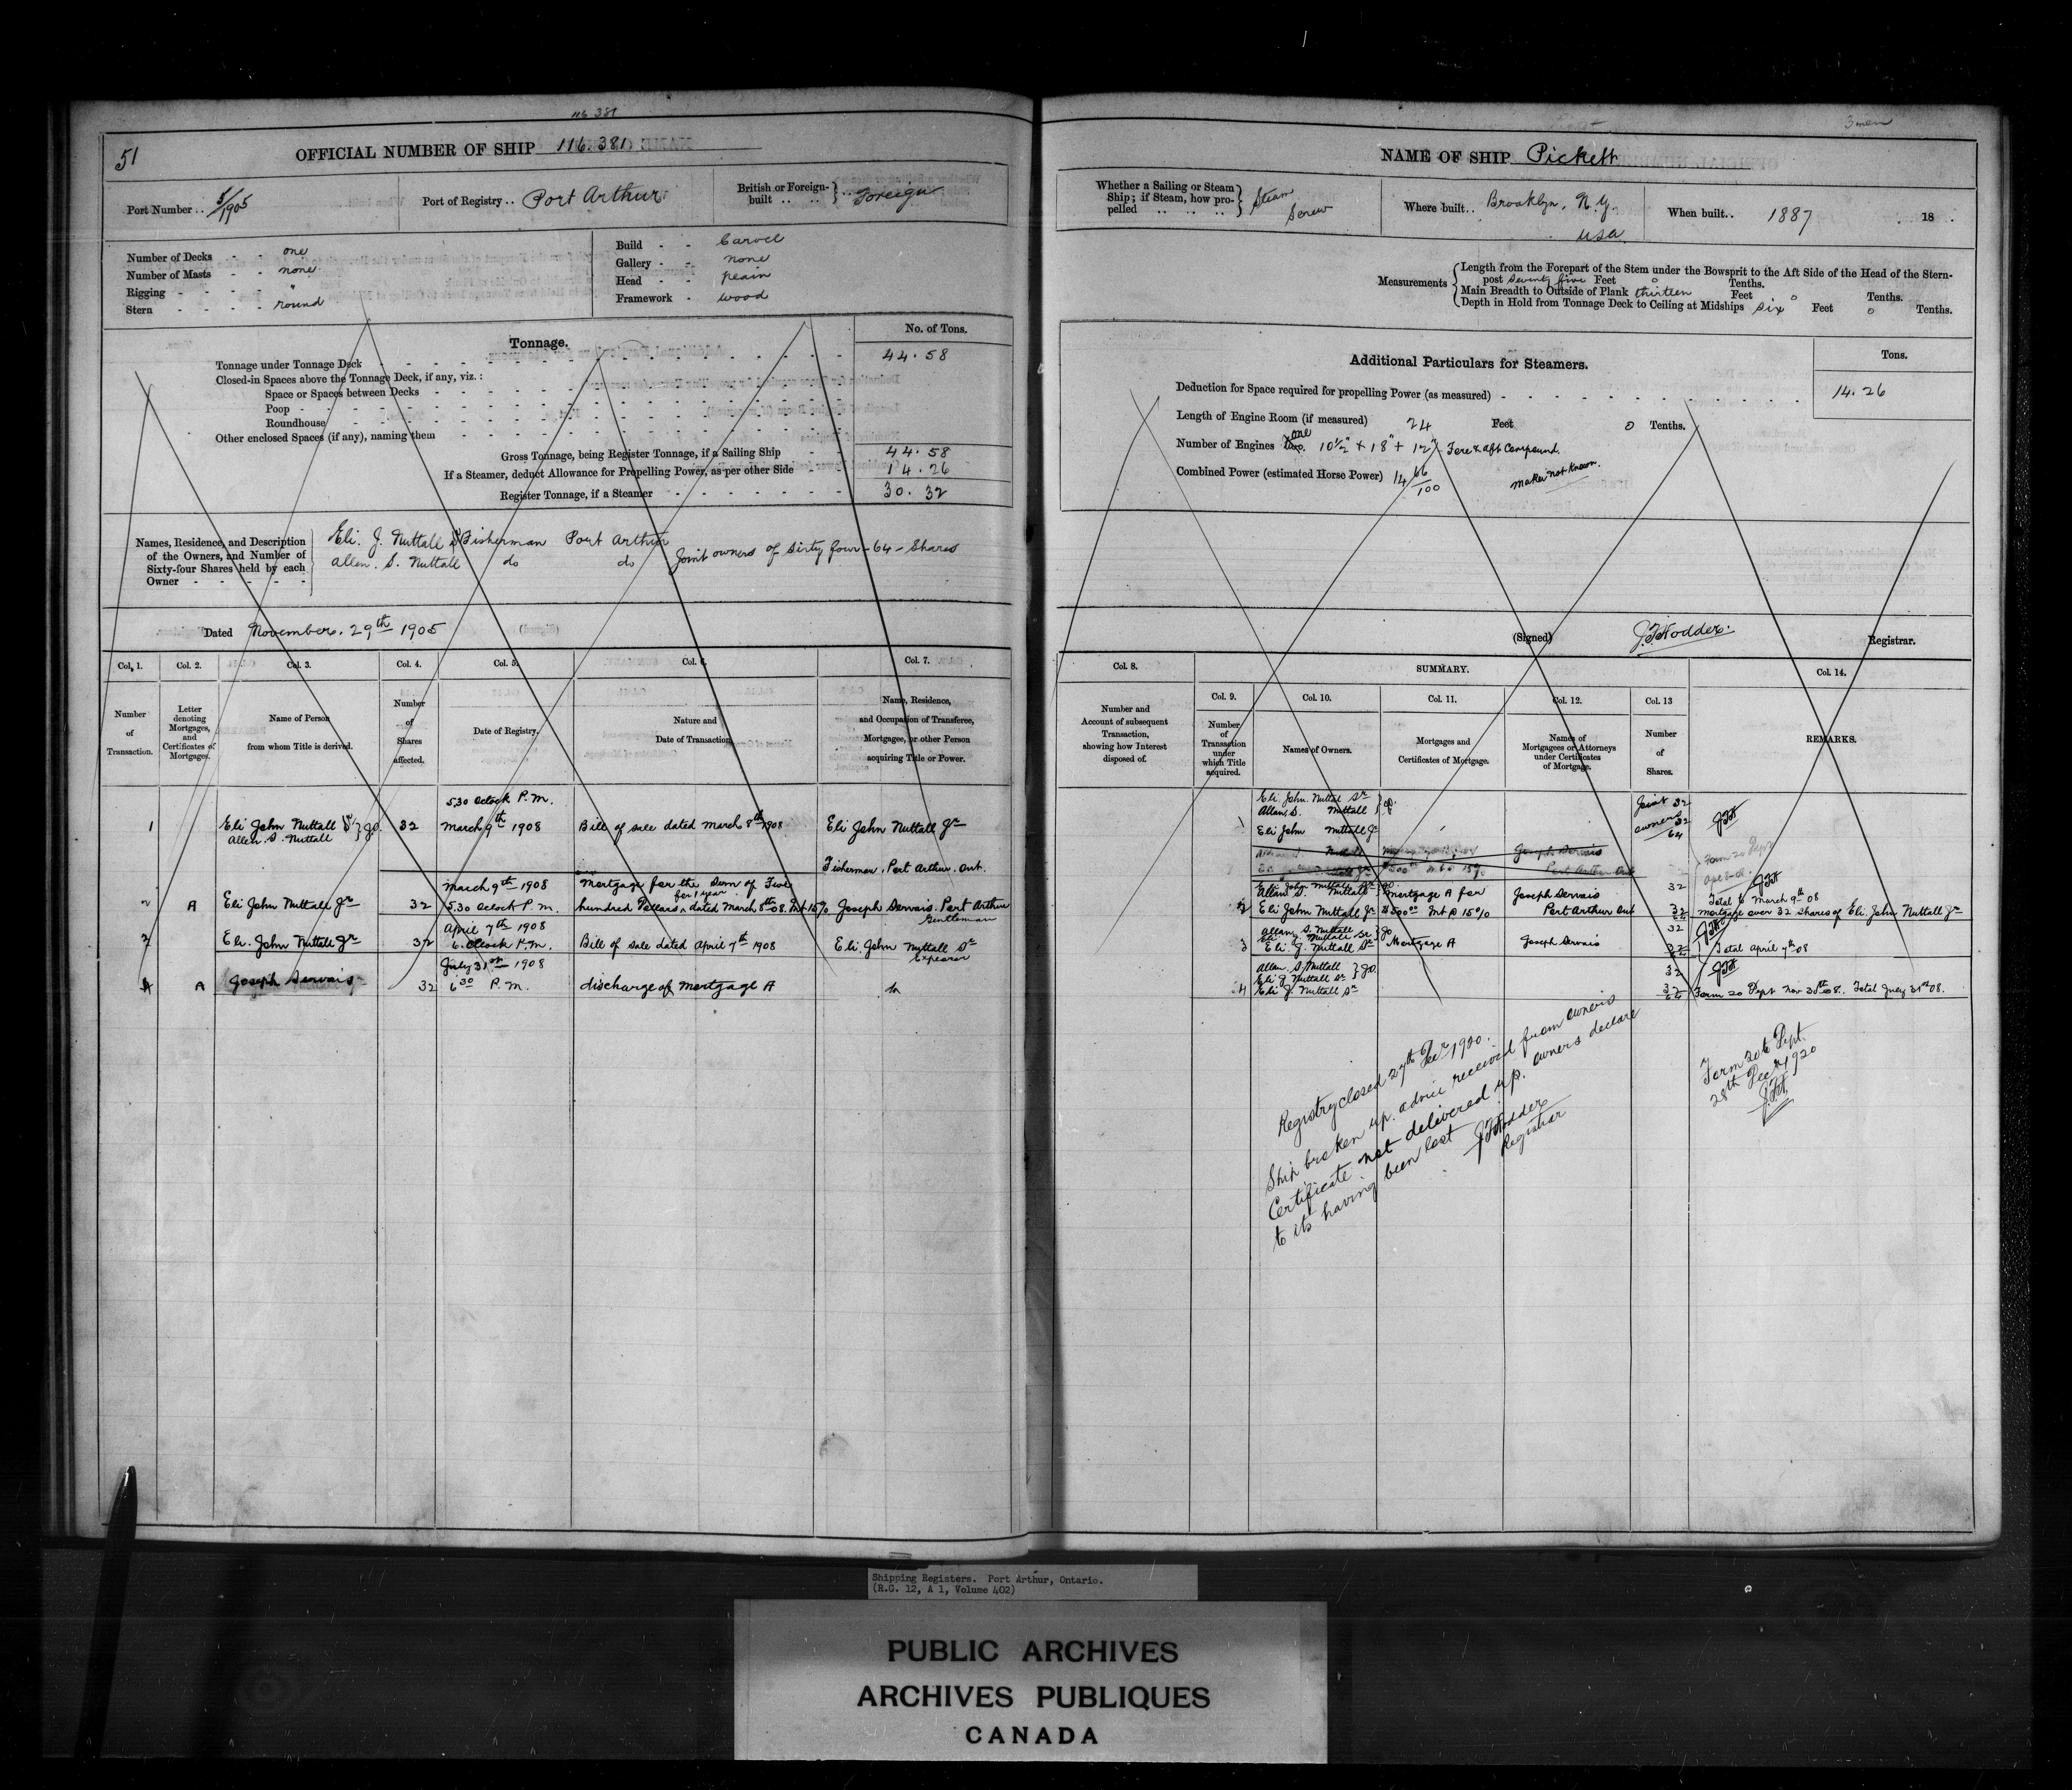 116 381
51
OFFICIAL NUMBER OF SHIP 116.381
Port Number .. 5/1905
Port of Registry .. Port Arthur
British or Foreign-built .. .. } Foreign
Number of Decks - - one
Number of Masts - none
Rigging - - - - "
Stern - - - - round
Build - - Carvel
Gallery - - none
Head - - plain
Framework - wood
Tonnage.
No. of Tons.
Tonnage under Tonnage Deck 44.58
Closed-in Spaces above the Tonnage Deck, if any, viz.:
Space or Spaces between Decks
Poop
Roundhouse
Other enclosed Spaces (if any), naming them
Gross Tonnage, being Register Tonnage, if a Sailing Ship 44.58
If a Steamer, deduct Allowance for Propelling Power, as per other Side 14.26
Register Tonnage, if a Steamer 30.32
Names, Residence, and Description
of the Owners, and Number of
Sixty-four Shares held by each
Owner
Eli. J. Nuttall Sr Fisherman Port Arthur
Allen. S. Nuttall do do Joint owners of Sixty four - 64 - Shares
Dated November. 29th 1905
Col. 1.
Col. 2.
Col. 3.
Col. 4.
Col. 5.
Col. 6.
Col. 7.
Number of Transaction.
Letter denoting Mortgages, and Certificates of Mortgages.
Name of Person from whom Title is derived.
Number of Shares affected.
Date of Registry.
Nature and Date of Transaction.
Name, Residence, and Occupation of Transferee, Mortgagee, or other Person acquiring Title or Power.
5.30 oclock P.M.
1 Eli John Nuttall Sr } J.O. 32 March 9th 1908 Bill of sale dated March 8th 1908 Eli John Nuttall Jr
Allen. S. Nuttall
Fisherman, Port Arthur. Ont.
March 9th 1908 Mortgage for the Sum of Five
for 1 year
2 A Eli John Nuttall Jr 32 5.30 oclock P.M. hundred Dollars dated March 8th 08. Int 15% Joseph Servais. Port Arthur
Gentleman
April 7th 1908
3 Eli. John Nuttall Jr 32 6. oclock P.M. Bill of sale dated April 7th 1908 Eli. John Nuttall Sr
July 31st 1908
4 A Joseph Servais 32 6 30 P.M. discharge of Mortgage A
3 men
NAME OF SHIP Pickett
Whether a Sailing or Steam
Ship; if Steam, how pro-
pelled } Steam Screw
Where built .. Brooklyn, N.Y. USA
When built .. 1887 18 .
Measurements
Length from the Forepart of the Stem under the Bowsprit to the Aft Side of the Head of the Stern-
post Seventy five Feet 0 Tenths.
Main Breadth to Outside of Plank thirteen Feet 0 Tenths.
Depth in Hold from Tonnage Deck to Ceiling at Midships Six Feet 0 Tenths.
Additional Particulars for Steamers.
Tons.
Deduction for Space required for propelling Power (as measured) 14.26
Length of Engine Room (if measured) 24 Feet 0 Tenths.
Number of Engines one 10 1/2" + 18" + 12" Fore & aft Compound.
Combined Power (estimated Horse Power) 14 66/100 maker not known.
(Signed) J.F. Hodder. Registrar.
Col. 8.
SUMMARY.
Col. 14.
Col. 9.
Col. 10.
Col. 11.
Col. 12.
Col. 13
Number and Account of subsequent Transaction, showing how Interest disposed of.
Number of Transaction under which Title acquired.
Names of Owners.
Mortgages and Certificates of Mortgage.
Names of Mortgagees or Attorneys under Certificates of Mortgage.
Number of Shares.
REMARKS.
Eli John Nuttal Sr Joint 32
Allan, S. Nuttall owners
1 Eli John Nuttall Jr 32 JFH
64
Joseph Servais
Port Arthur Ont
Eli John Nuttall Sr JO. 32 JFH
Allan S. Nuttall Mortgage A for Joseph Servais Total to March 9th 08
2 Eli John Nuttall Jr $500 00 Int @ 15% Port Arthur Ont 32 mortgage over 32 shares of Eli. John Nuttall Jr
Allan, S. Nuttall } JO 32 JFH
Eli J. Nuttall Sr
3 Eli. J. Nuttall Sr Mortgage A Joseph Servais 32 Total April 7th 08
Allan. S. Nuttall } JO. 32 JFH
Eli J Nuttall Sr
4 Eli J. Nuttall Sr 32 Form 20 Dept Nov 30th 08. Total July 31st 08.
Registry closed 27th Decr 1920.
Ship broken up. advice received from owners
Certificate not delivered up. owners declare
to its having been lost JFHodder
Registrar
Form 20 to Dept.
28th Decr 1920
JFH
Shipping Registers. Port Arthur, Ontario.
(R.G. 12, A 1, Volume 402)
PUBLIC ARCHIVES
ARCHIVES PUBLIQUES
CANADA